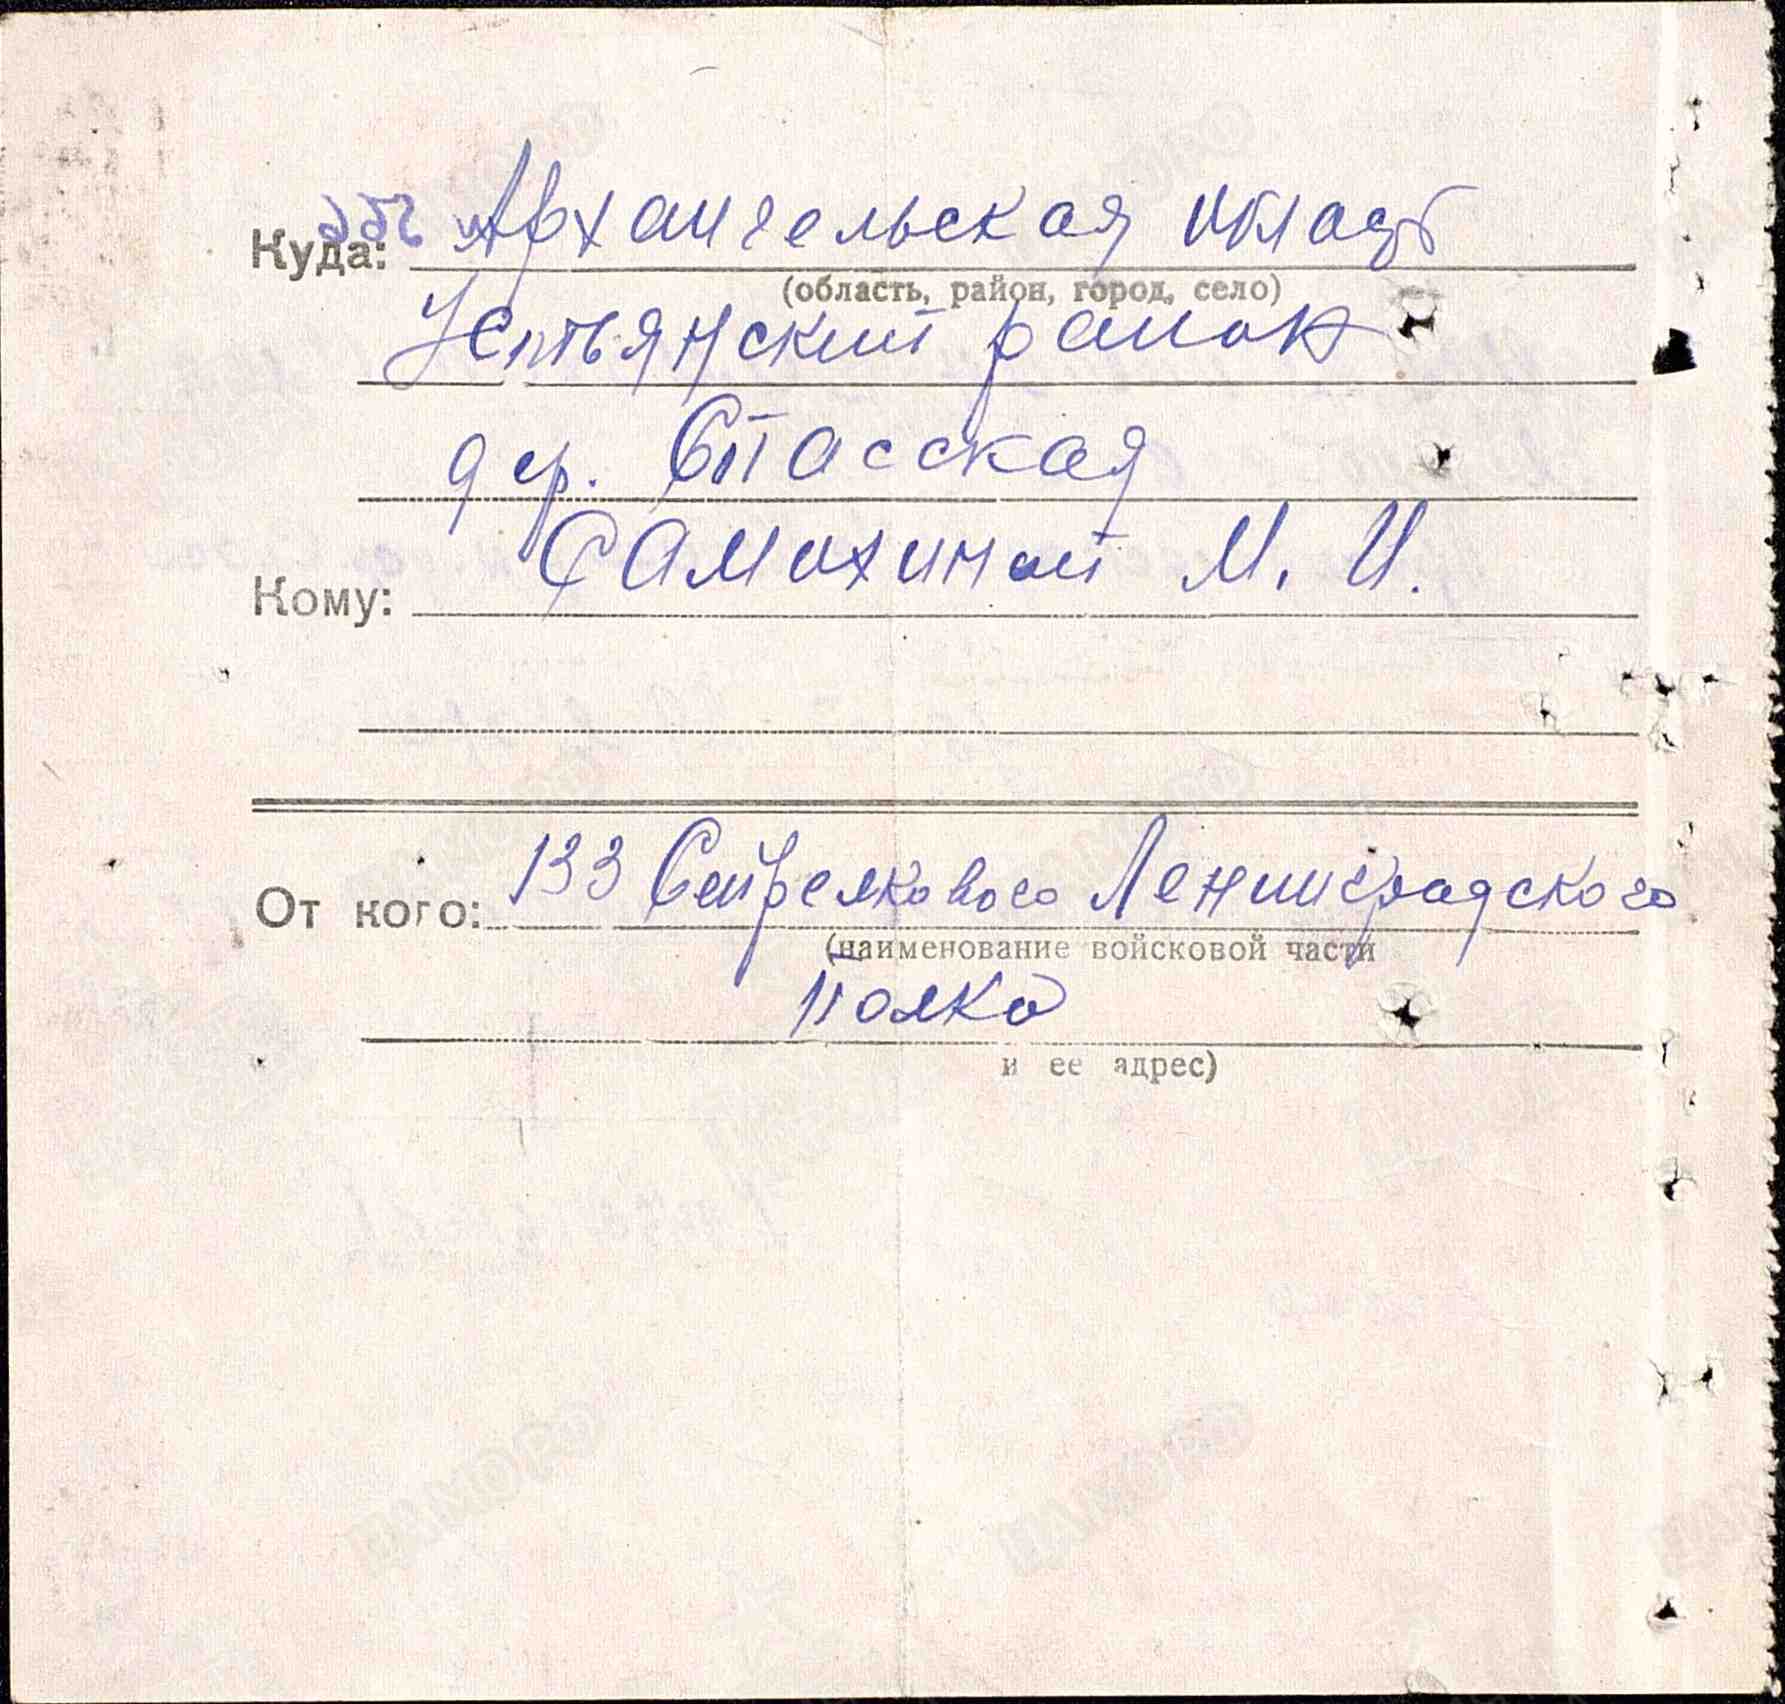 Куда: Архангельская область
(область, район, город, село)
Устьянский район
дер. Спасская
Кому: Самохиной М. И.
От кого: 133 Стрелкового Ленинградского
(наименование войсковой части
полка
и ее адрес)